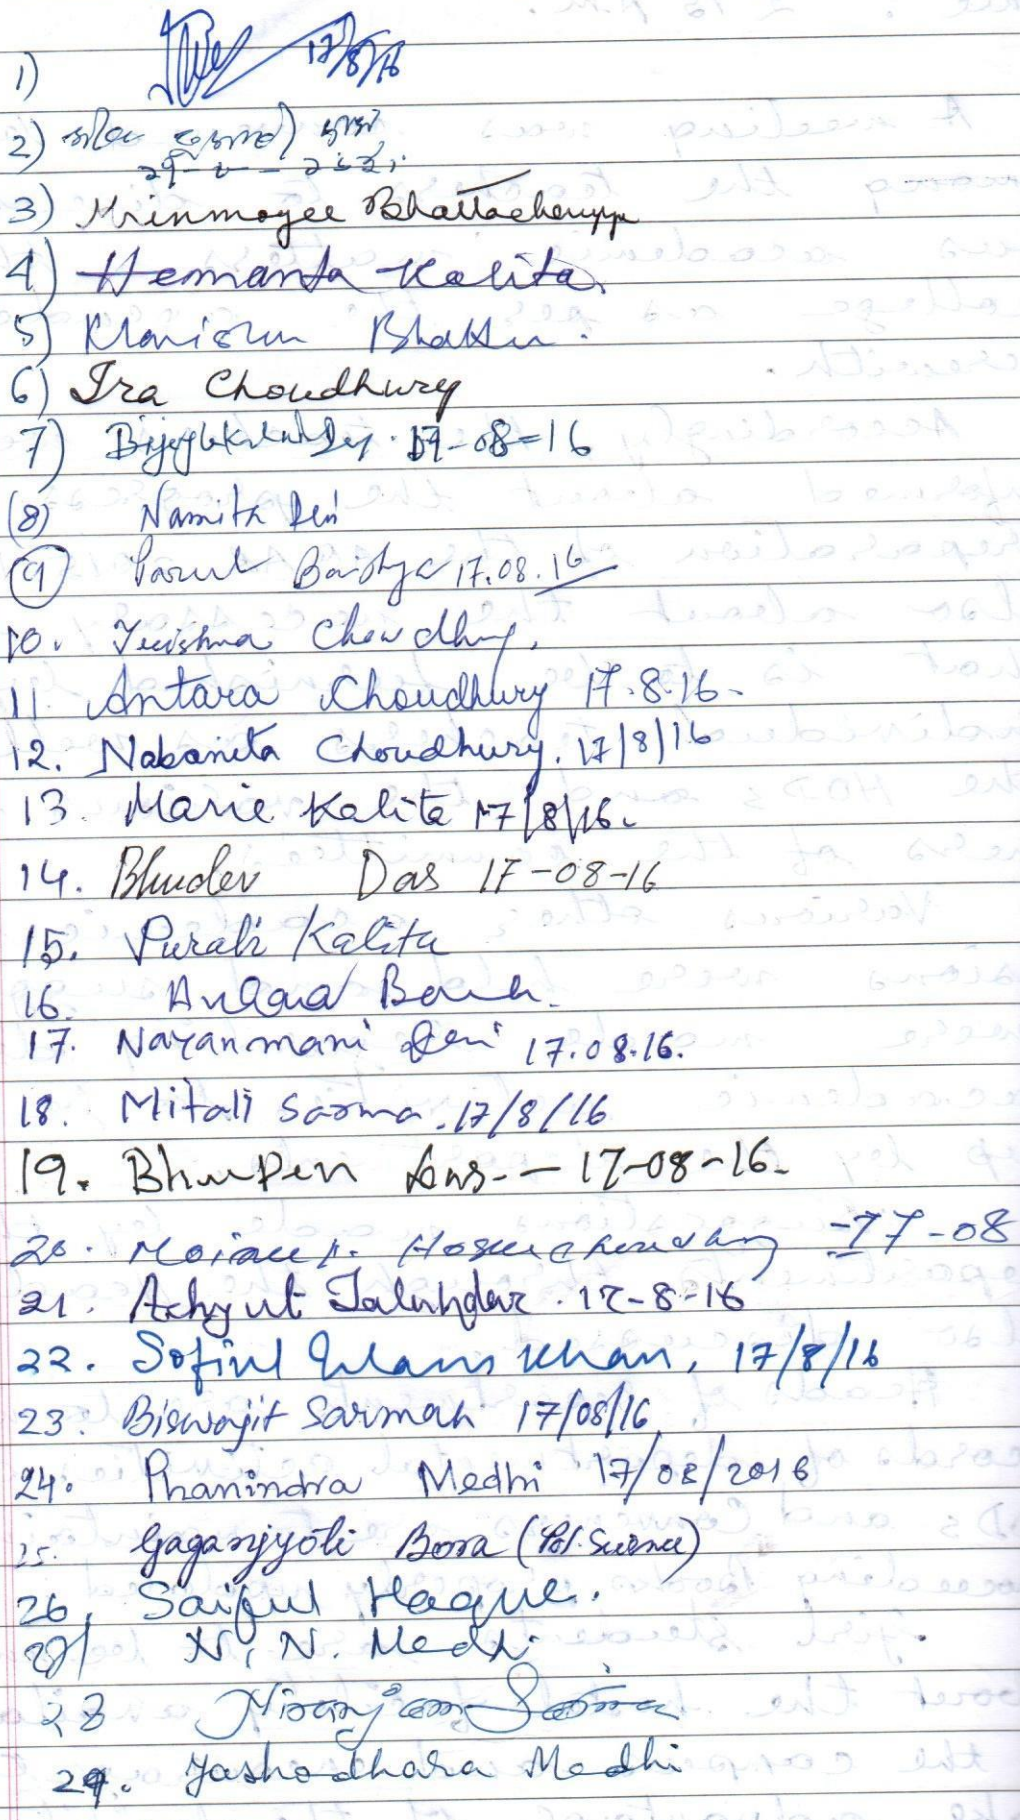 1) 17/8/16
2)
3) Mrinmoyee Bhattacharyya
4) Hemanta Kalita.
5) Bhatta.
6) Ira Choudhury
7) 17-08-16
(8) Namita Devi
9 Parul Baishya 17.08.16
10. Choudhury.
11. Antara Choudhury 17.8.16-
12. Nabanita Choudhury. 17/8/16
13. Manie Kalita 17/8/16.
14. Bhudev Das 17-08-16
15. Purabi Kalita
16.
17. Nayanmani Devi 17.08.16.
18. Mitali Sarma. 17/8/16
19. Bhupen Das.- 17-08-16.
20. -17-08
21. Achyut Talukdar. 17-8-16
22. Sofiul Khan, 17/8/16
23. Biswajit Sarmah 17/08/16
24. Phanindra Medhi 17/08/2016
25. Gaganjyoti Bora (Pol. Science)
26. Saiful Haque.
27/ N. N. Medhi
28 Niranjan Sarma
29. Jashodhara Medhi